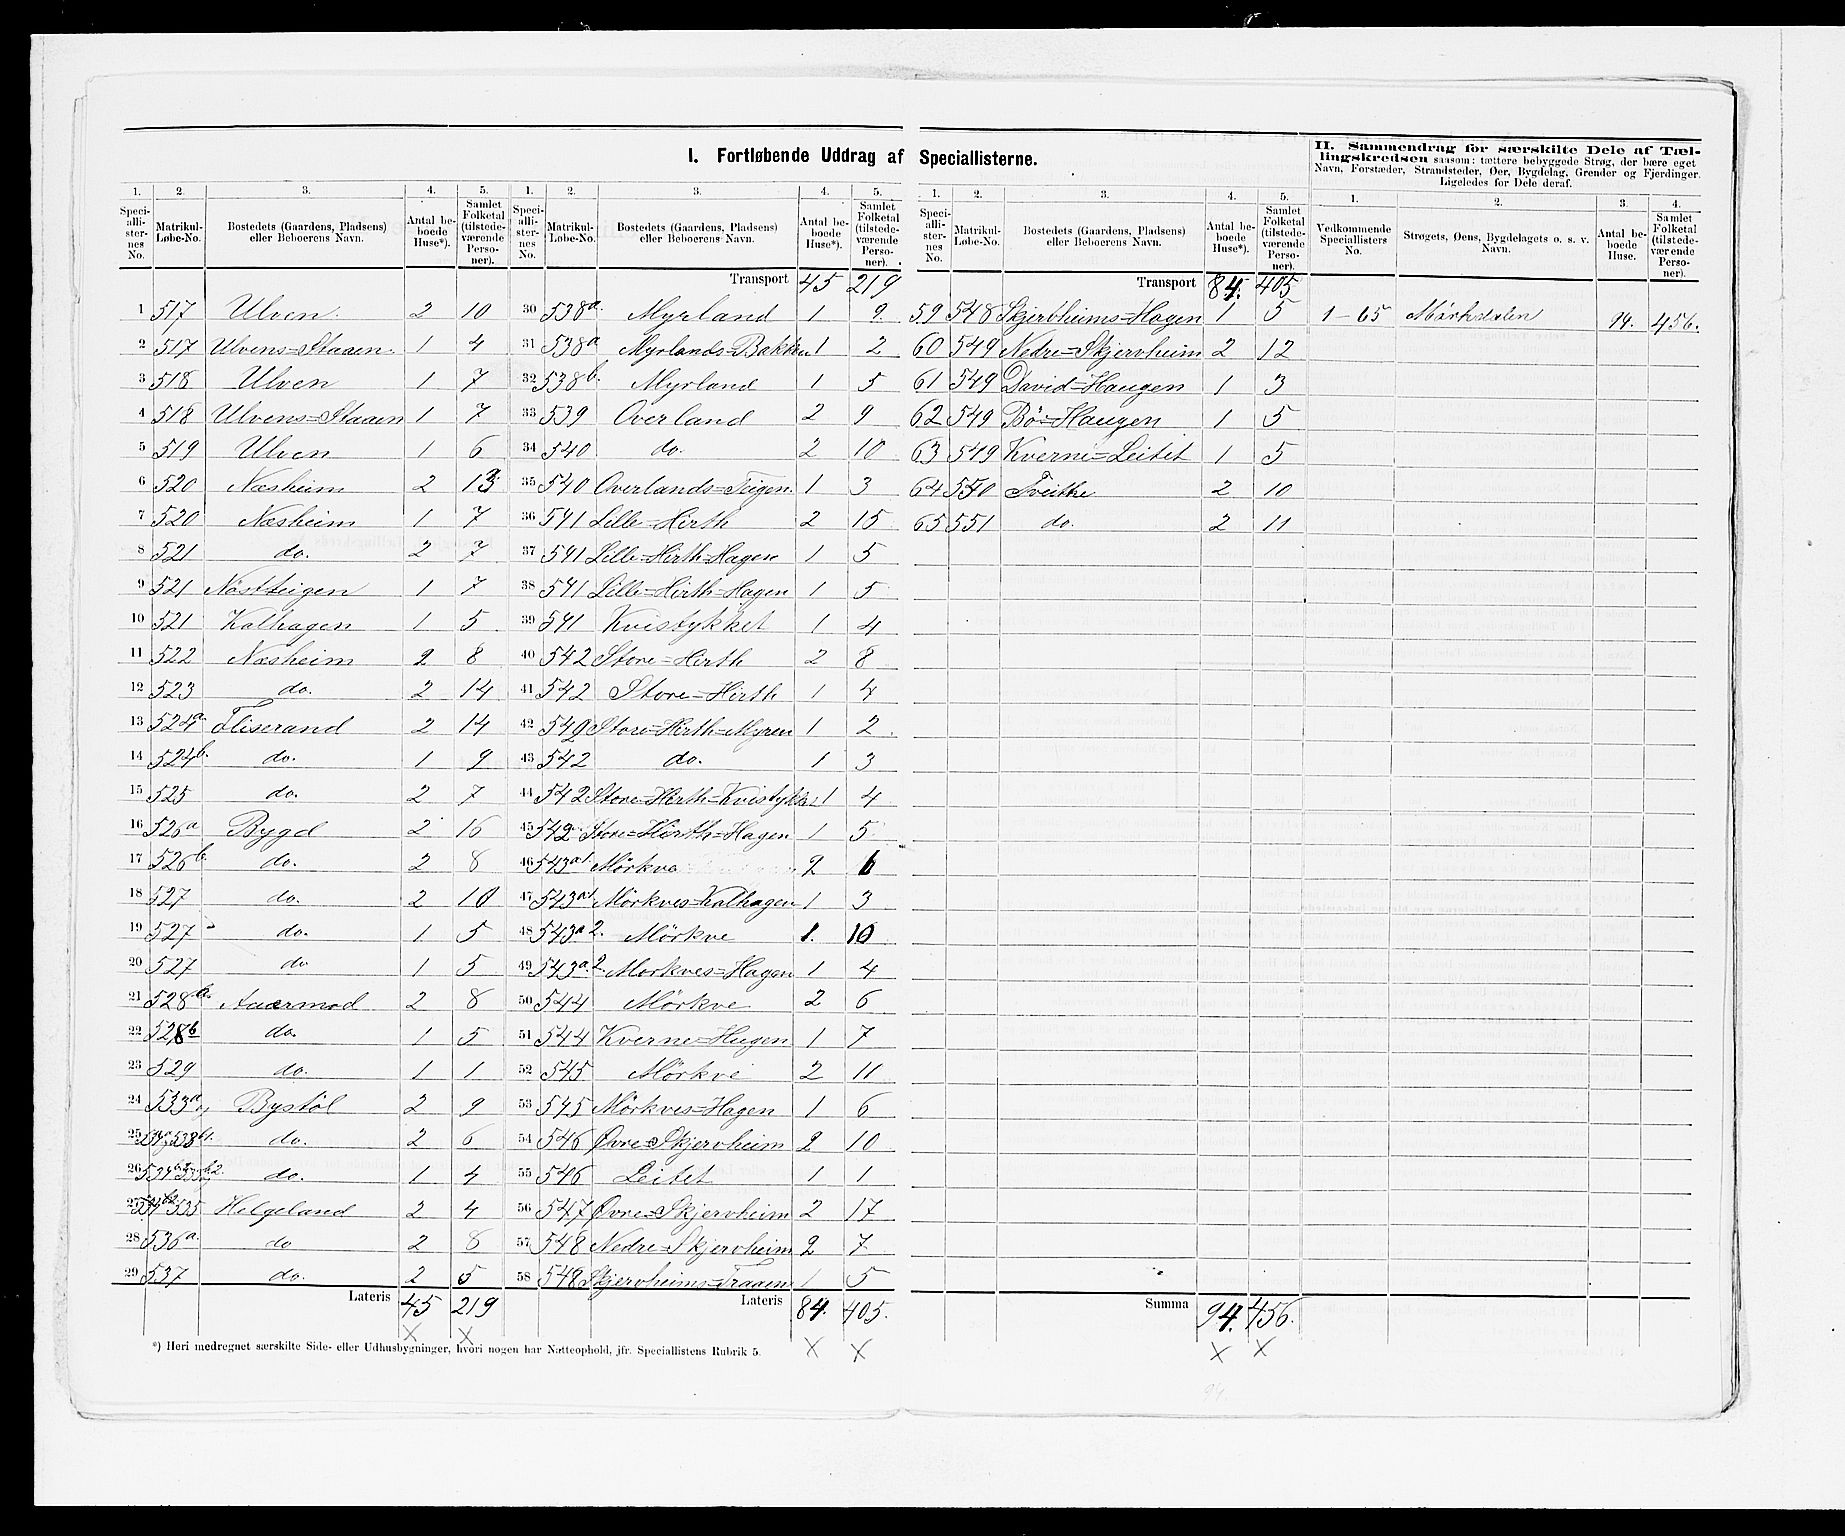 I. Fortløbende Uddrag af Speciallisterne.
II. Sammendrag for særskilte Dele af Tæl-
lingskredsen saasom: tættere bebyggede Strøg, der bære eget
Navn, Forstæder, Strandsteder, Øer, Bygdelag, Grender og Fjerdinger.
Ligeledes for Dele deraf.
1. 2. 3. 4. 5.
Speciallisternes No. Matrikul-Løbe-No. Bostedets (Gaardens, Pladsens) eller Beboerens Navn. Antal beboede Huse*). Samlet Folketal (tilstedeværende Personer).
1 517 Ulven 2 10
2 517 Ulvens=Staaen 1 4
3 518 Ulven 1 7
4 518 Ulvens=Staaen 1 7
5 519 Ulven 1 6
6 520 Næsheim 2 13
7 520 Næsheim 1 7
8 521 do. 2 7
9 521 Nøstteigen 1 7
10 521 Kalhagen 1 5
11 522 Næsheim 2 8
12 523 do. 2 14
13 524a Fliserand 2 14
14 524b. do. 1 9
15 525 do. 2 7
16 526a Bygd 2 16
17 526b. do. 2 8
18 527 do. 2 10
19 527 do. 1 5
20 527 do 1 5
21 528a. Aaermod 2 8
22 528b do. 1 5
23 529 do. 1 1
24 533a Bystøl 2 9
25 do. 2 6
26 do. 1 4
27 535 Helgeland 2 4
28 536a. do 2 8
29 537 do. 2 5
Lateris 45 219
1. 2. 3. 4. 5.
Speciallisternes No. Matrikul-Løbe-No. Bostedets (Gaardens, Pladsens) eller Beboerens Navn. Antal beboede Huse*). Samlet Folketal (tilstedeværende Personer).
Transport 45 219
30 538a. Myrland 1 9
31 538a Myrlands=Bakken 1 2
32 538b. Myrland 1 5
33 539 Overland 2 9
34 540 do. 2 10
35 540 Overlands=Teigen. 1 3
36 541 Lille=Hirth 2 15
37 541 Lille=Hirth=Hagen 1 5
38 541 Lille=Hirth=Hagen 1 5
39 541 Kvistykket 1 4
40 542 Store=Hirth 2 8
41 542 Store=Hirth 1 4
42 542 Store=Hirth=Myren 1 2
43 542 do. 1 3
44 542 Store=Hirth=Kvistykket 1 4
45 542 Store=Hirth=Hagen 1 5
46 543a1. Mörkve 2 6
47 543a1 Mörkves=Kalhagen 1 3
48 543a2. Mörkve 1. 10
49 543a.2. Morkves=Hagen 1 4
50 544 Mörkve 2 6
51 544 Kverne=Hugen 1 7
52 545 Mörkve 2 11
53 545 Mörkves=Hagen 1 6
54 546 Øvre=Skjervheim 2 10
55 546 Leitet 1 1
56 547 Øvre=Skjervheim 2 17
57 548 Nedre=Skjervheim 2 7
58 548 Skjervheims=Traaen 1 5
Lateris 84. 405.
1. 2. 3. 4. 5.
Speciallisternes No. Matrikul-Løbe-No. Bostedets (Gaardens, Pladsens) eller Beboerens Navn. Antal beboede Huse*). Samlet Folketal (tilstedeværende Personer).
Transport 84. 405
59 548 Skjervheims=Hagen 1 5
60 549 Nedre=Skjervheim 2 12
61 549 David=Haugen 1 3
62 549 Bö=Haugen 1 5
63 549 Kverne=Leitet 1 5
64 550 Tveithe 2 10
65 551 do. 2 11
Summa 94. 456.
1. 2. 3. 4.
Vedkommende Speciallisters No. Strøgets, Øens, Bygdelagets o. s. v. Navn. Antal beboede Huse. Samlet Folketal (tilstedeværende Personer).
1-65 Mörkdalen 94. 456.
*) Heri medregnet særskilte Side- eller Udhusbygninger, hvori nogen har Natteophold, jfr. Speciallistens Rubrik 5.
94.